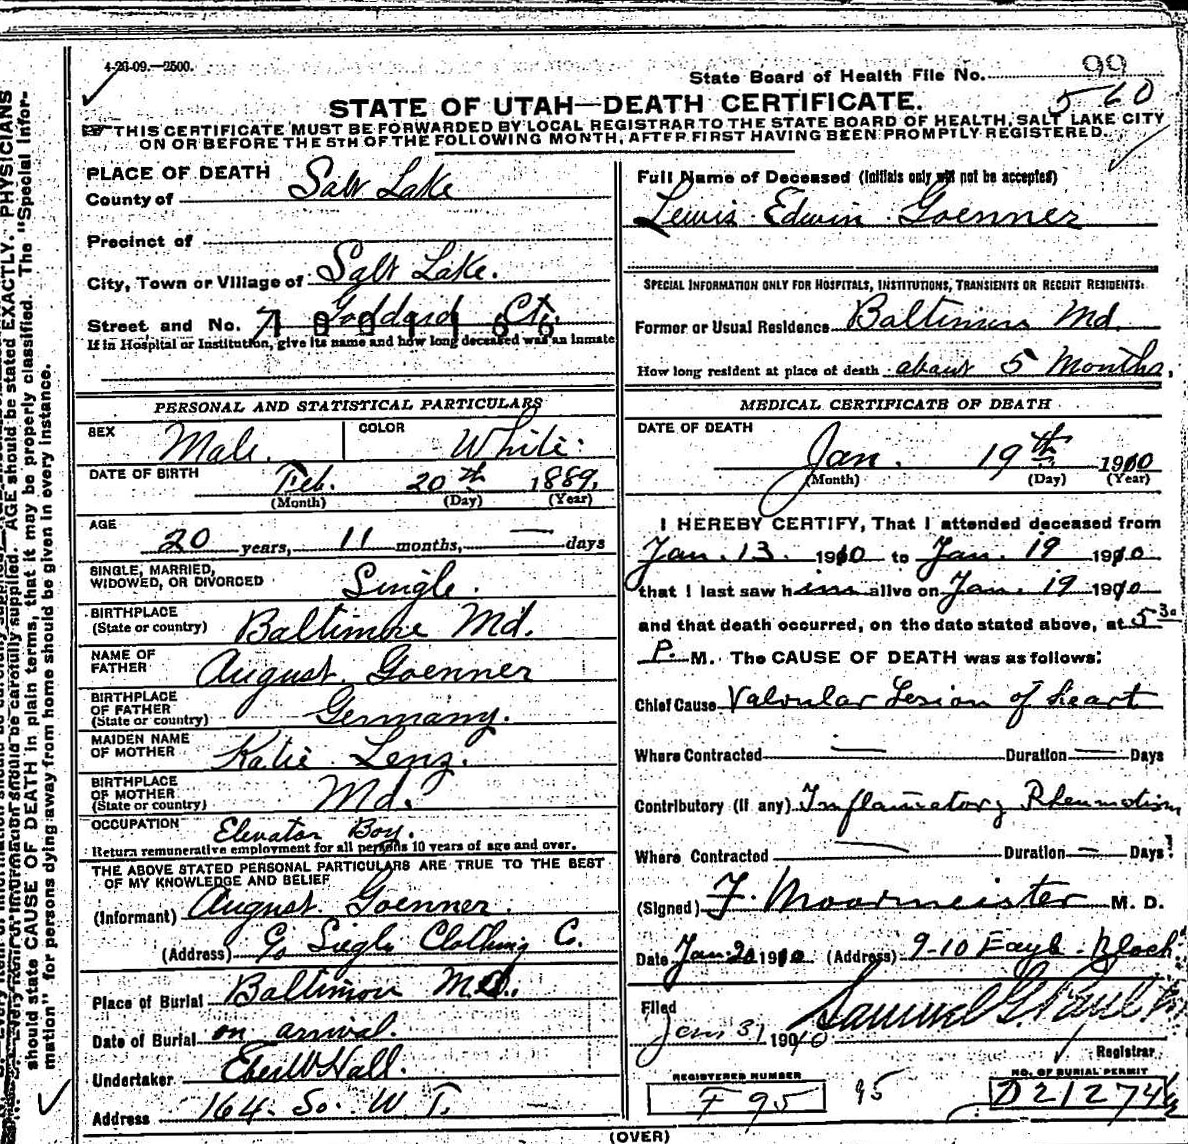 4-26-09.—2500.
State Board of Health File No. 99
560
STATE OF UTAH—DEATH CERTIFICATE.
THIS CERTIFICATE MUST BE FORWARDED BY LOCAL REGISTRAR TO THE STATE BOARD OF HEALTH, SALT LAKE CITY
ON OR BEFORE THE 5TH OF THE FOLLOWING MONTH, AFTER FIRST HAVING BEEN PROMPTLY REGISTERED.
PLACE OF DEATH
County of Salt Lake
Precinct of
City, Town or Village of Salt Lake.
Street and No. 7 Goddard Ct.
If in Hospital or Institution, give its name and how long deceased was an inmate
Full Name of Deceased (Initials only will not be accepted)
Lewis Edwin Goenner
SPECIAL INFORMATION ONLY FOR HOSPITALS, INSTITUTIONS, TRANSIENTS OR RECENT RESIDENTS:
Former or Usual Residence Baltimore Md.
How long resident at place of death about 5 Months.
PERSONAL AND STATISTICAL PARTICULARS
SEX Male. COLOR White.
DATE OF BIRTH Feb. 20th 1889.
(Month) (Day) (Year)
AGE
20 years, 11 months, — days
SINGLE, MARRIED,
WIDOWED, OR DIVORCED Single.
BIRTHPLACE
(State or country) Baltimore Md.
NAME OF
FATHER August Goenner
BIRTHPLACE
OF FATHER
(State or country) Germany.
MAIDEN NAME
OF MOTHER Katie Lenz.
BIRTHPLACE
OF MOTHER
(State or country) Md.
OCCUPATION Elevator Boy.
Return remunerative employment for all persons 10 years of age and over.
THE ABOVE STATED PERSONAL PARTICULARS ARE TRUE TO THE BEST
OF MY KNOWLEDGE AND BELIEF
(Informant) August Goenner.
(Address) c/o Siegle Clothing C.
Place of Burial Baltimore Md.
Date of Burial on arrival.
Undertaker Eber W Hall.
Address 164 So. W T.
MEDICAL CERTIFICATE OF DEATH
DATE OF DEATH
Jan. 19th 1910
(Month) (Day) (Year)
I HEREBY CERTIFY, That I attended deceased from
Jan. 13. 1910 to Jan. 19 1910
that I last saw him alive on Jan. 19 1910
and that death occurred, on the date stated above, at 5 30
P. M. The CAUSE OF DEATH was as follows:
Chief Cause Valvular Lesion of heart
Where Contracted — Duration — Days
Contributory (if any) Inflamatory Rheumatism
Where Contracted — Duration — Days
(Signed) F. Moormeister M. D.
Date Jan 20 1910 (Address) 9-10 Eagle Block
Filed
Jan 31 1910 Samuel G. Paul
Registrar
REGISTERED NUMBER
F 95 95
NO. OF BURIAL PERMIT
D21274
(OVER)
AGE should be stated EXACTLY. PHYSICIANS
should state CAUSE OF DEATH in plain terms, that it may be properly classified. The "Special Infor-
mation" for persons dying away from home should be given in every instance.